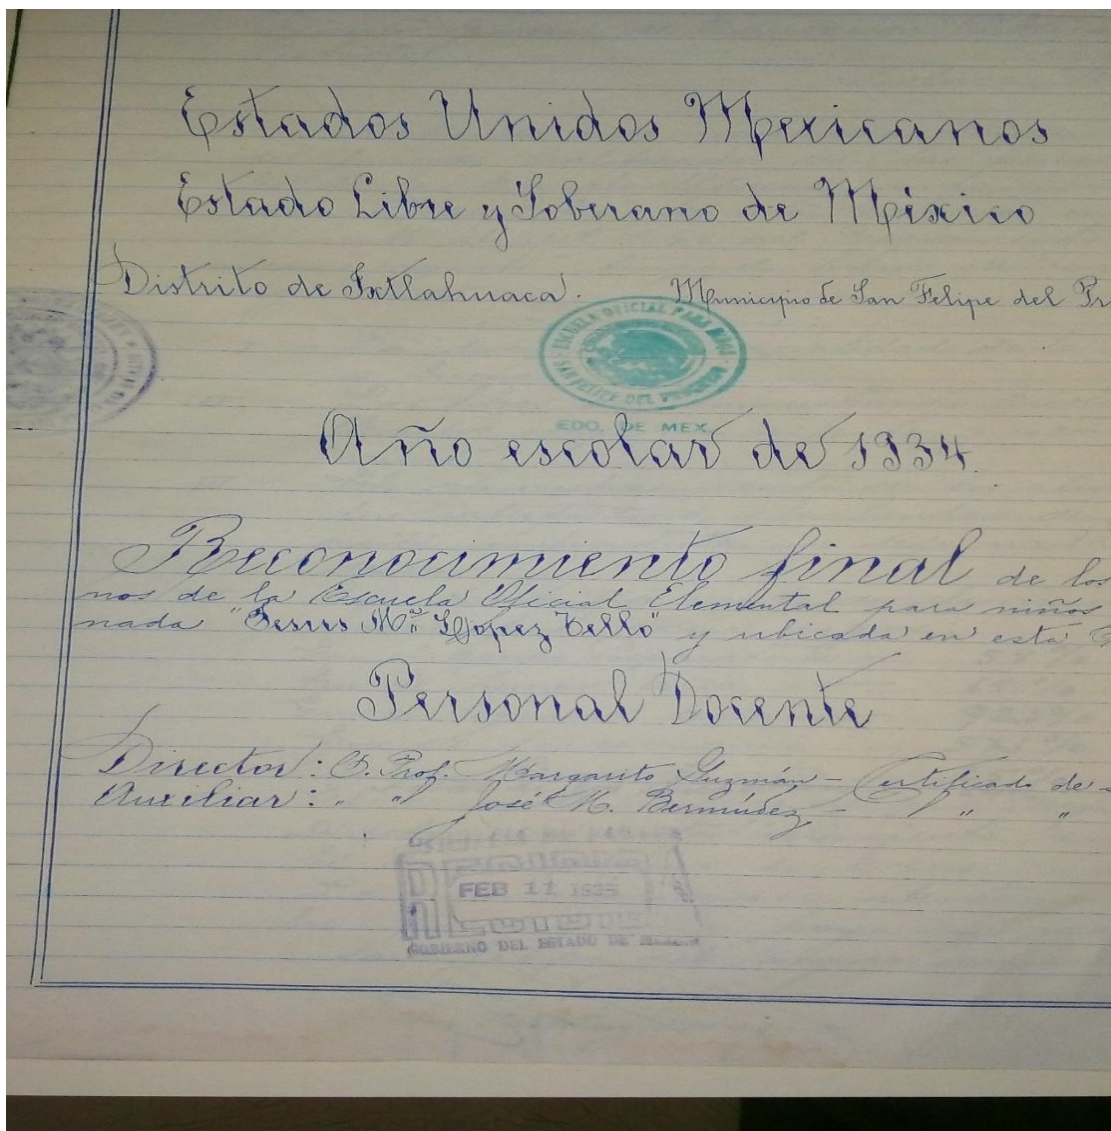 Estados Unidos Mexicanos
Estado Libre y Soberano de México
Distrito de Ixtlahuaca. Municipio de San Felipe del Pr
ESCUELA OFICIAL PARA NIÑOS
SAN FELIPE DEL PROGRESO
EDO. DE MEX.
Año escolar de 1934.
Reconocimiento final de los
nos de la Escuela Oficial Elemental para niños
nada "Jesus Ma. López Tello" y ubicada en esta
Personal Docente
Director: C. Prof. Margarito Guzmán - Certificado de
Auxiliar: " " José M. Bermúdez - " "
FEB 11 1935
GOBIERNO DEL ESTADO DE MEXICO